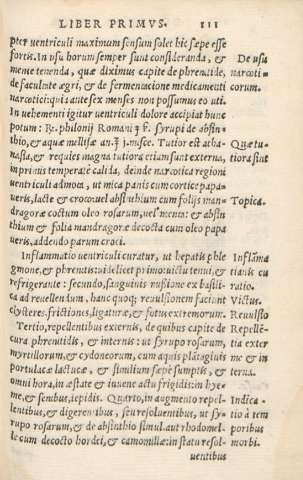 LIBER PRIMVS. 111
pter ventriculi maximum sensum solet hic sæpe esse
fortis. In vsu horum semper sunt consideranda, &
mente tenenda, quæ diximus capite de phrenitide,
de facultate ægri, & de fermentatione medicamenti
narcotici: quis ante sex menses non possumus eo uti.
In vehementi igitur ventriculi dolore accipiat hunc
potum: Rx. philonij Romani ʒ ß. syrupi de absin-
thio, & aquæ mellisæ an. ℥ j. misce. Tutior est atha-
nasia, & requies magna tutiora etiam sunt externa,
in primis temperatè calida, deinde narcotica regioni
ventriculi admota, ut mica panis cum cortice papa-
veris, lacte & croco: vel absinthium cum folijs man-
dragoræ coctum oleo rosarum, vel menta: & absin
thium & folia mandragoræ decocta cum oleo papa
veris, addendo parum croci.
Inflammatio ventriculi curatur, ut hepatis phle
gmone, & phrentis: videlicet primo: uictu tenui, &
refrigerante: secundo, sanguinis missione ex basili-
ca ad revellendum, hanc quoque revulsionem faciunt
clysteres: frictiones, ligaturæ, & lotus extremorum.
Tertio, repellentibus externis, de quibus capite de
cura phrenitidis, & internis: ut syrupo rosarum,
myrtillorum, & cydoneorum, cum aquis plātaginis
portulacæ lactucæ, & similium sæpe sumptis, &
omni hora, in æstate & iuvene actu frigidis: in hye-
me, & senibus, tepidis. Quarto, in augmento repel-
lentibus, & digerentibus, seu resoluentibus, ut sy-
rupo rosarum, & de absinthio simul. aut rhodomel-
le cum decocto hordei, & camomillæ: in statu resol-
uentibus
De usu
narcoti-
corum.
Quæ tu-
tiora sint
Topica.
Inflāma
tionis cu
ratio.
Victus.
Revulsio
Repellē-
tia exter
næ & in
terna.
Indica-
tio à tem
poribus
morbi.